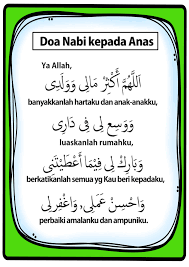 Doa Nabi kepada Anas
Ya Allah,
اَللّٰهُمَّ أَكْثِرْ مَالِى وَوَلَدِى
banyakkanlah hartaku dan anak-anakku,
وَوَسِعْ لِى فِى دَارِى
luaskanlah rumahku,
وَبَارِكْ لِى فِيمَا أَعْطَيْتَنِى
berkatikanlah semua yg Kau beri kepadaku,
وَاحْسِنْ عَمَلِى، وَاغْفِرْلِى
perbaiki amalanku dan ampuniku.